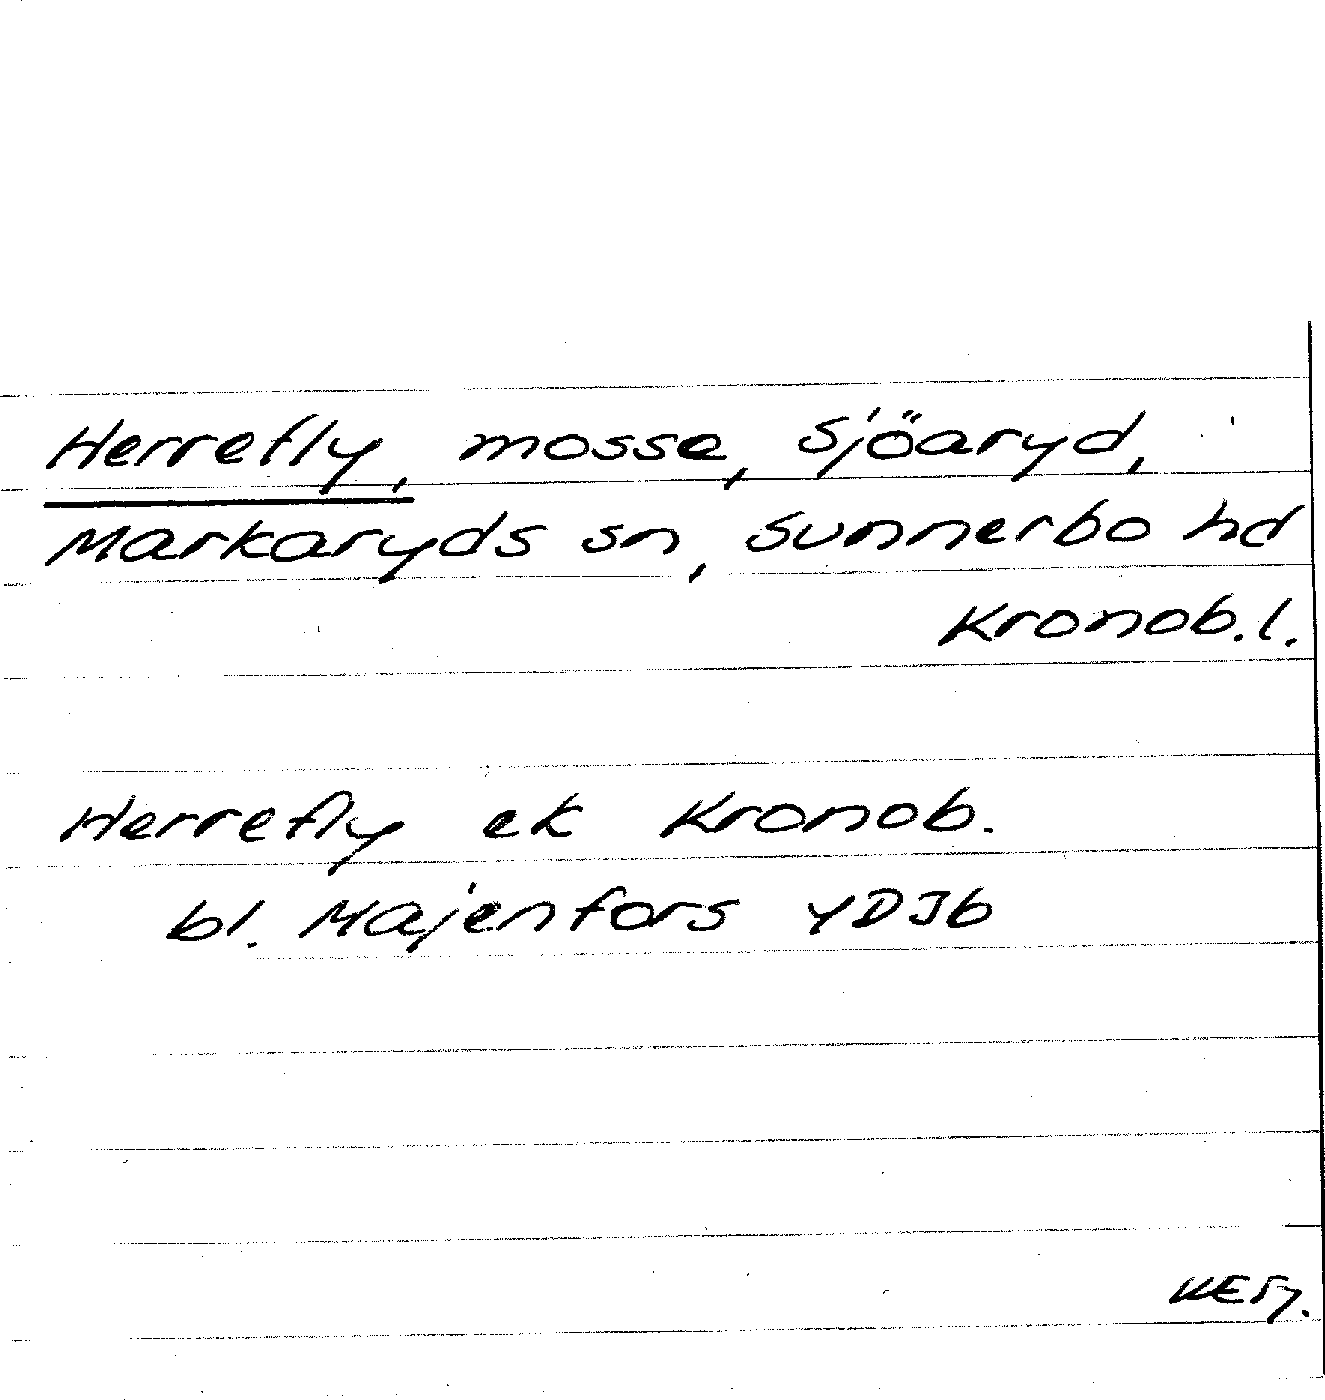 Herrefly, mosse, Sjöaryd,
Markaryds sn, Sunnerbo hd
Kronob. l.
Herrefly ek Kronob.
bl. Majenfors YDJb